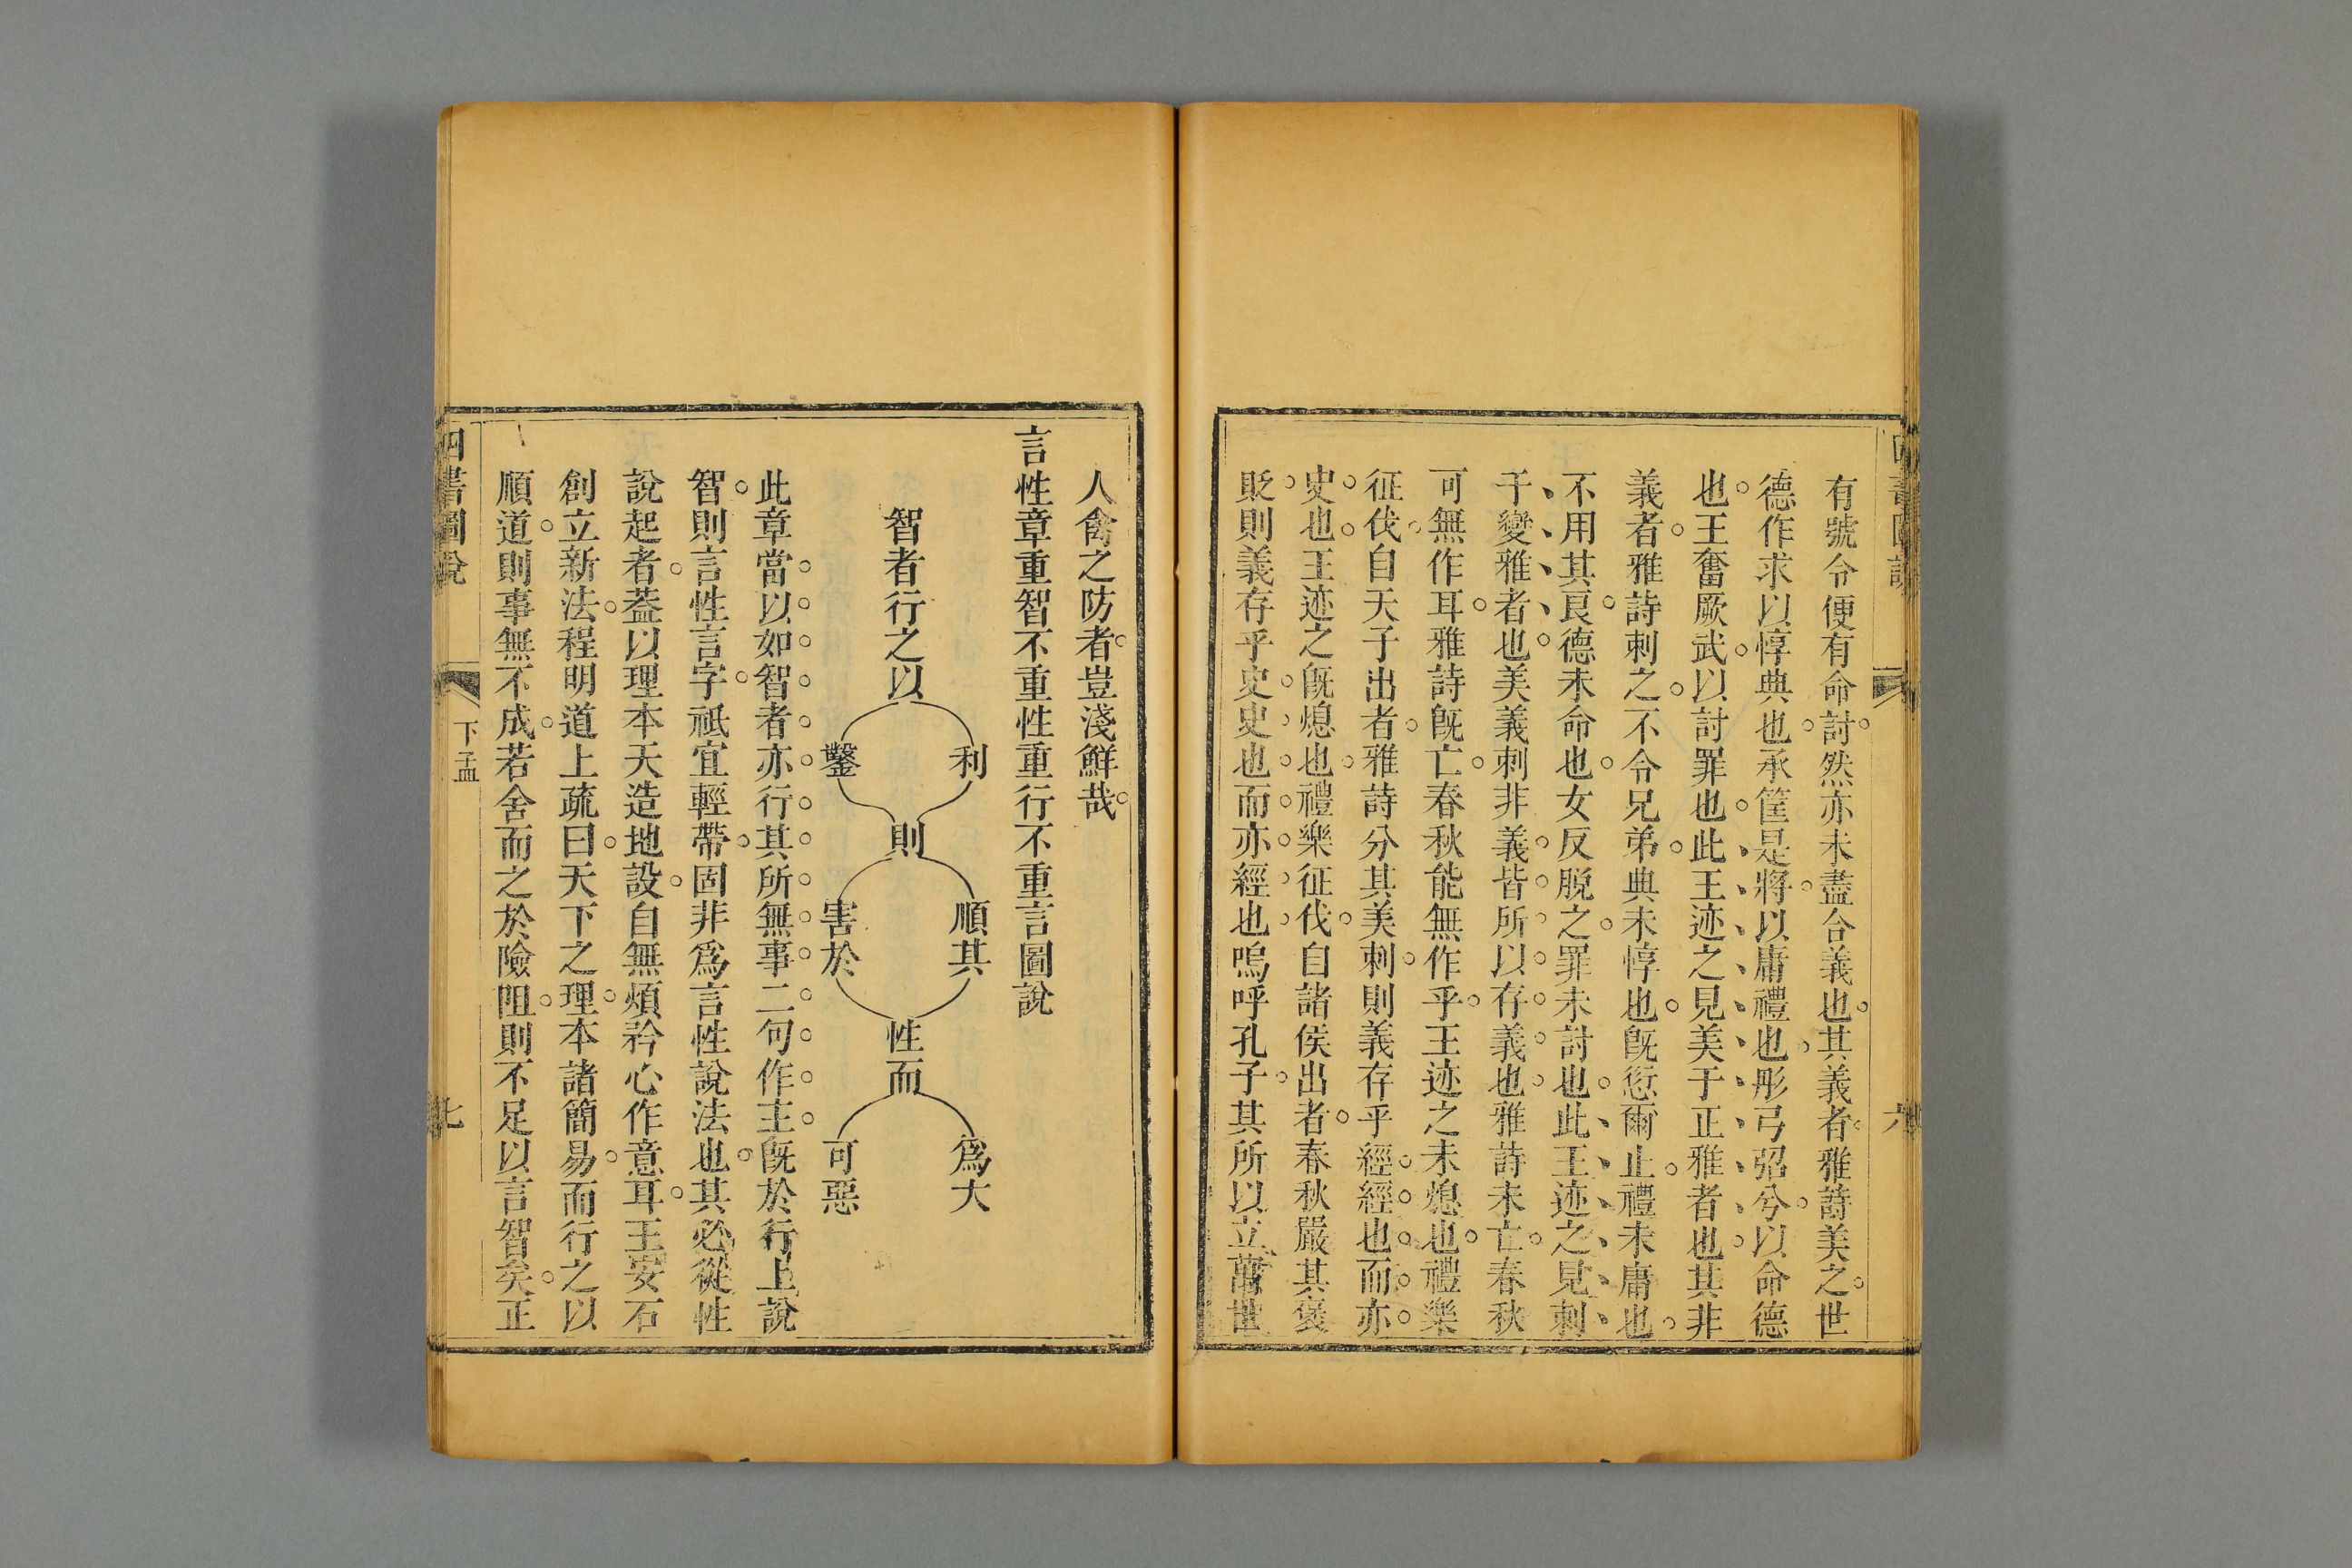 有號令便有命討然亦未盡合義也其義者雅詩美之世
德作求以惇典也承筐是將以庸禮也彤弓弨兮以命德
也王奮厥武以討罪也此王迹之見美于正雅者也其非
義者雅詩刺之不令兄弟典未惇也旣愆爾止禮未庸也
不用其良德未命也女反脱之罪未討也此王迹之見刺
于變雅者也美義刺非義皆所以存義也雅詩未亡春秋
可無作耳雅詩旣亡春秋能無作乎王迹之未熄也禮樂
征伐自天子出者雅詩分其美刺則義存乎經經也而亦
史也王迹之旣熄也禮樂征伐自諸侯出者春秋嚴其褒
貶則義存乎史史也而亦經也嗚呼孔子其所以立萬世
四書圖說
六
人禽之防者豈淺鮮哉
言性章重智不重性重行不重言圖說
智者行之以
利
鑿
則
順其
害於
性而
爲大
可惡
此章當以如智者亦行其所無事二句作主旣於行上說
智則言性言字祗宜輕帶固非爲言性說法也其必從性
說起者葢以理本天造地設自無煩矜心作意耳王安石
創立新法程明道上疏曰天下之理本諸簡易而行之以
順道則事無不成若舍而之於險阻則不足以言智矣正
四書圖說
下孟
七